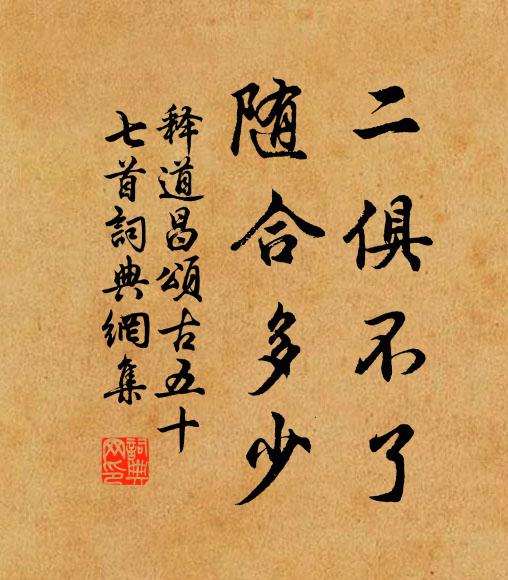 二俱不了
随合多少
释道昌頌古五十
七首詞典網集
詞典
网印